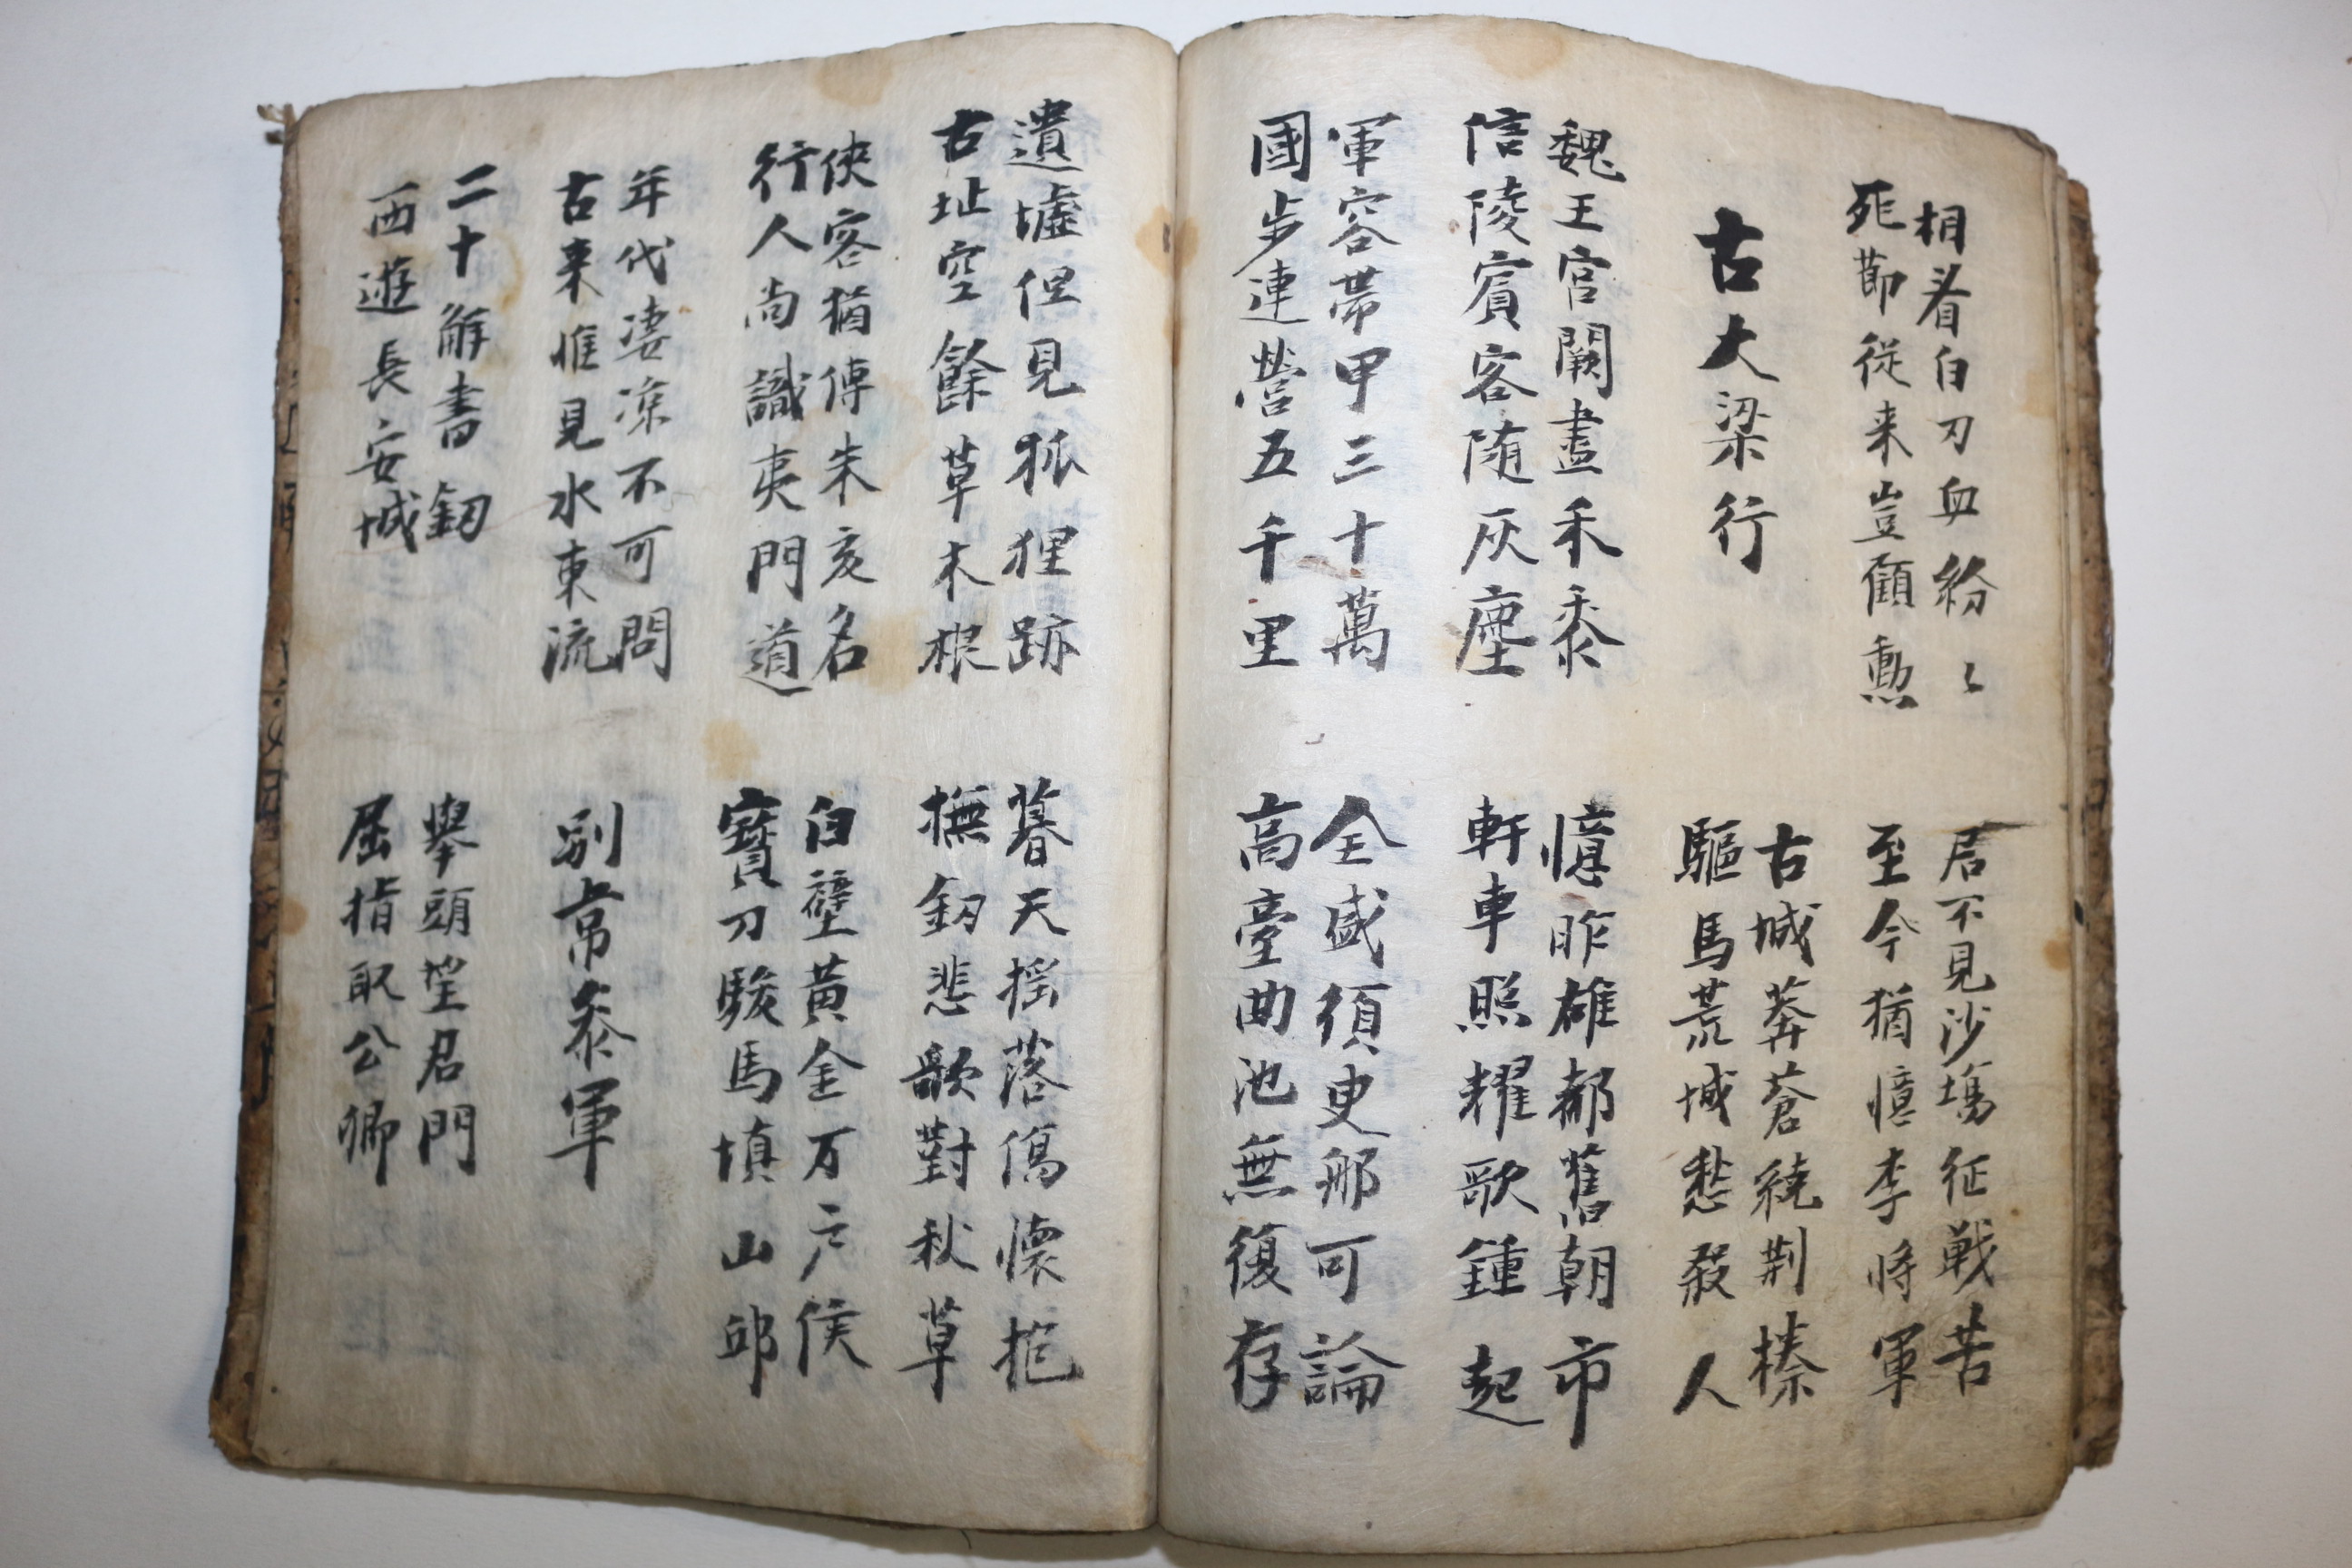 相看白刃血紛〻
死節從来豈顧勲
君不見沙塲征戰苦
至今猶憶李將軍
古大梁行
古城莽蒼繞荆榛
驅馬荒城愁殺人
魏王宮闕盡禾黍
信陵賓客隨灰塵
憶昨雄都舊朝市
軒車照耀歌鍾起
軍容帶甲三十萬
國步連營五千里
全盛須臾那可論
高臺曲池無復存
遺墟但見狐狸跡
古址空餘草木根
暮天搖落傷懷抱
撫釰悲歌對秋草
俠客猶傳朱亥名
行人尚識夷門道
白璧黃金万户侯
寶刀駿馬填山邱
年代凄凉不可問
古来惟見水東流
别常叅軍
二十解書釰
西遊長安城
擧頭望君門
屈指取公卿